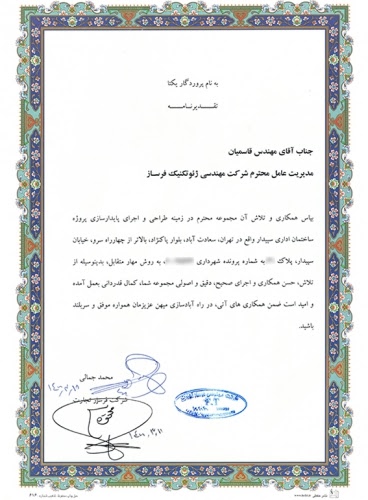 به نام پروردگار یکتا
تقدیرنامه
جناب آقای مهندس قاسمیان
مدیریت عامل محترم شرکت مهندسی ژئوتکنیک فرساز
بپاس همکاری و تلاش آن مجموعه محترم در زمینه طراحی و اجرای پایدارسازی پروژه
ساختمان اداری سپیدار واقع در تهران، سعادت آباد، بلوار پاکنژاد، بالاتر از چهارراه سرو، خیابان
سپیدار، پلاک به شماره پرونده شهرداری ، به روش مهار متقابل، بدینوسیله از
تلاش، حسن همکاری و اجرای صحیح، دقیق و اصولی مجموعه شما، کمال قدردانی بعمل آمده
و امید است ضمن همکاری های آتی، در راه آبادسازی میهن عزیزمان همواره موفق و سربلند
باشید.
محمد جمالی
۱۴۰۰,۳,۱۱
شرکت فرسور تجارت
۱۴۰۰,۳,۱۱